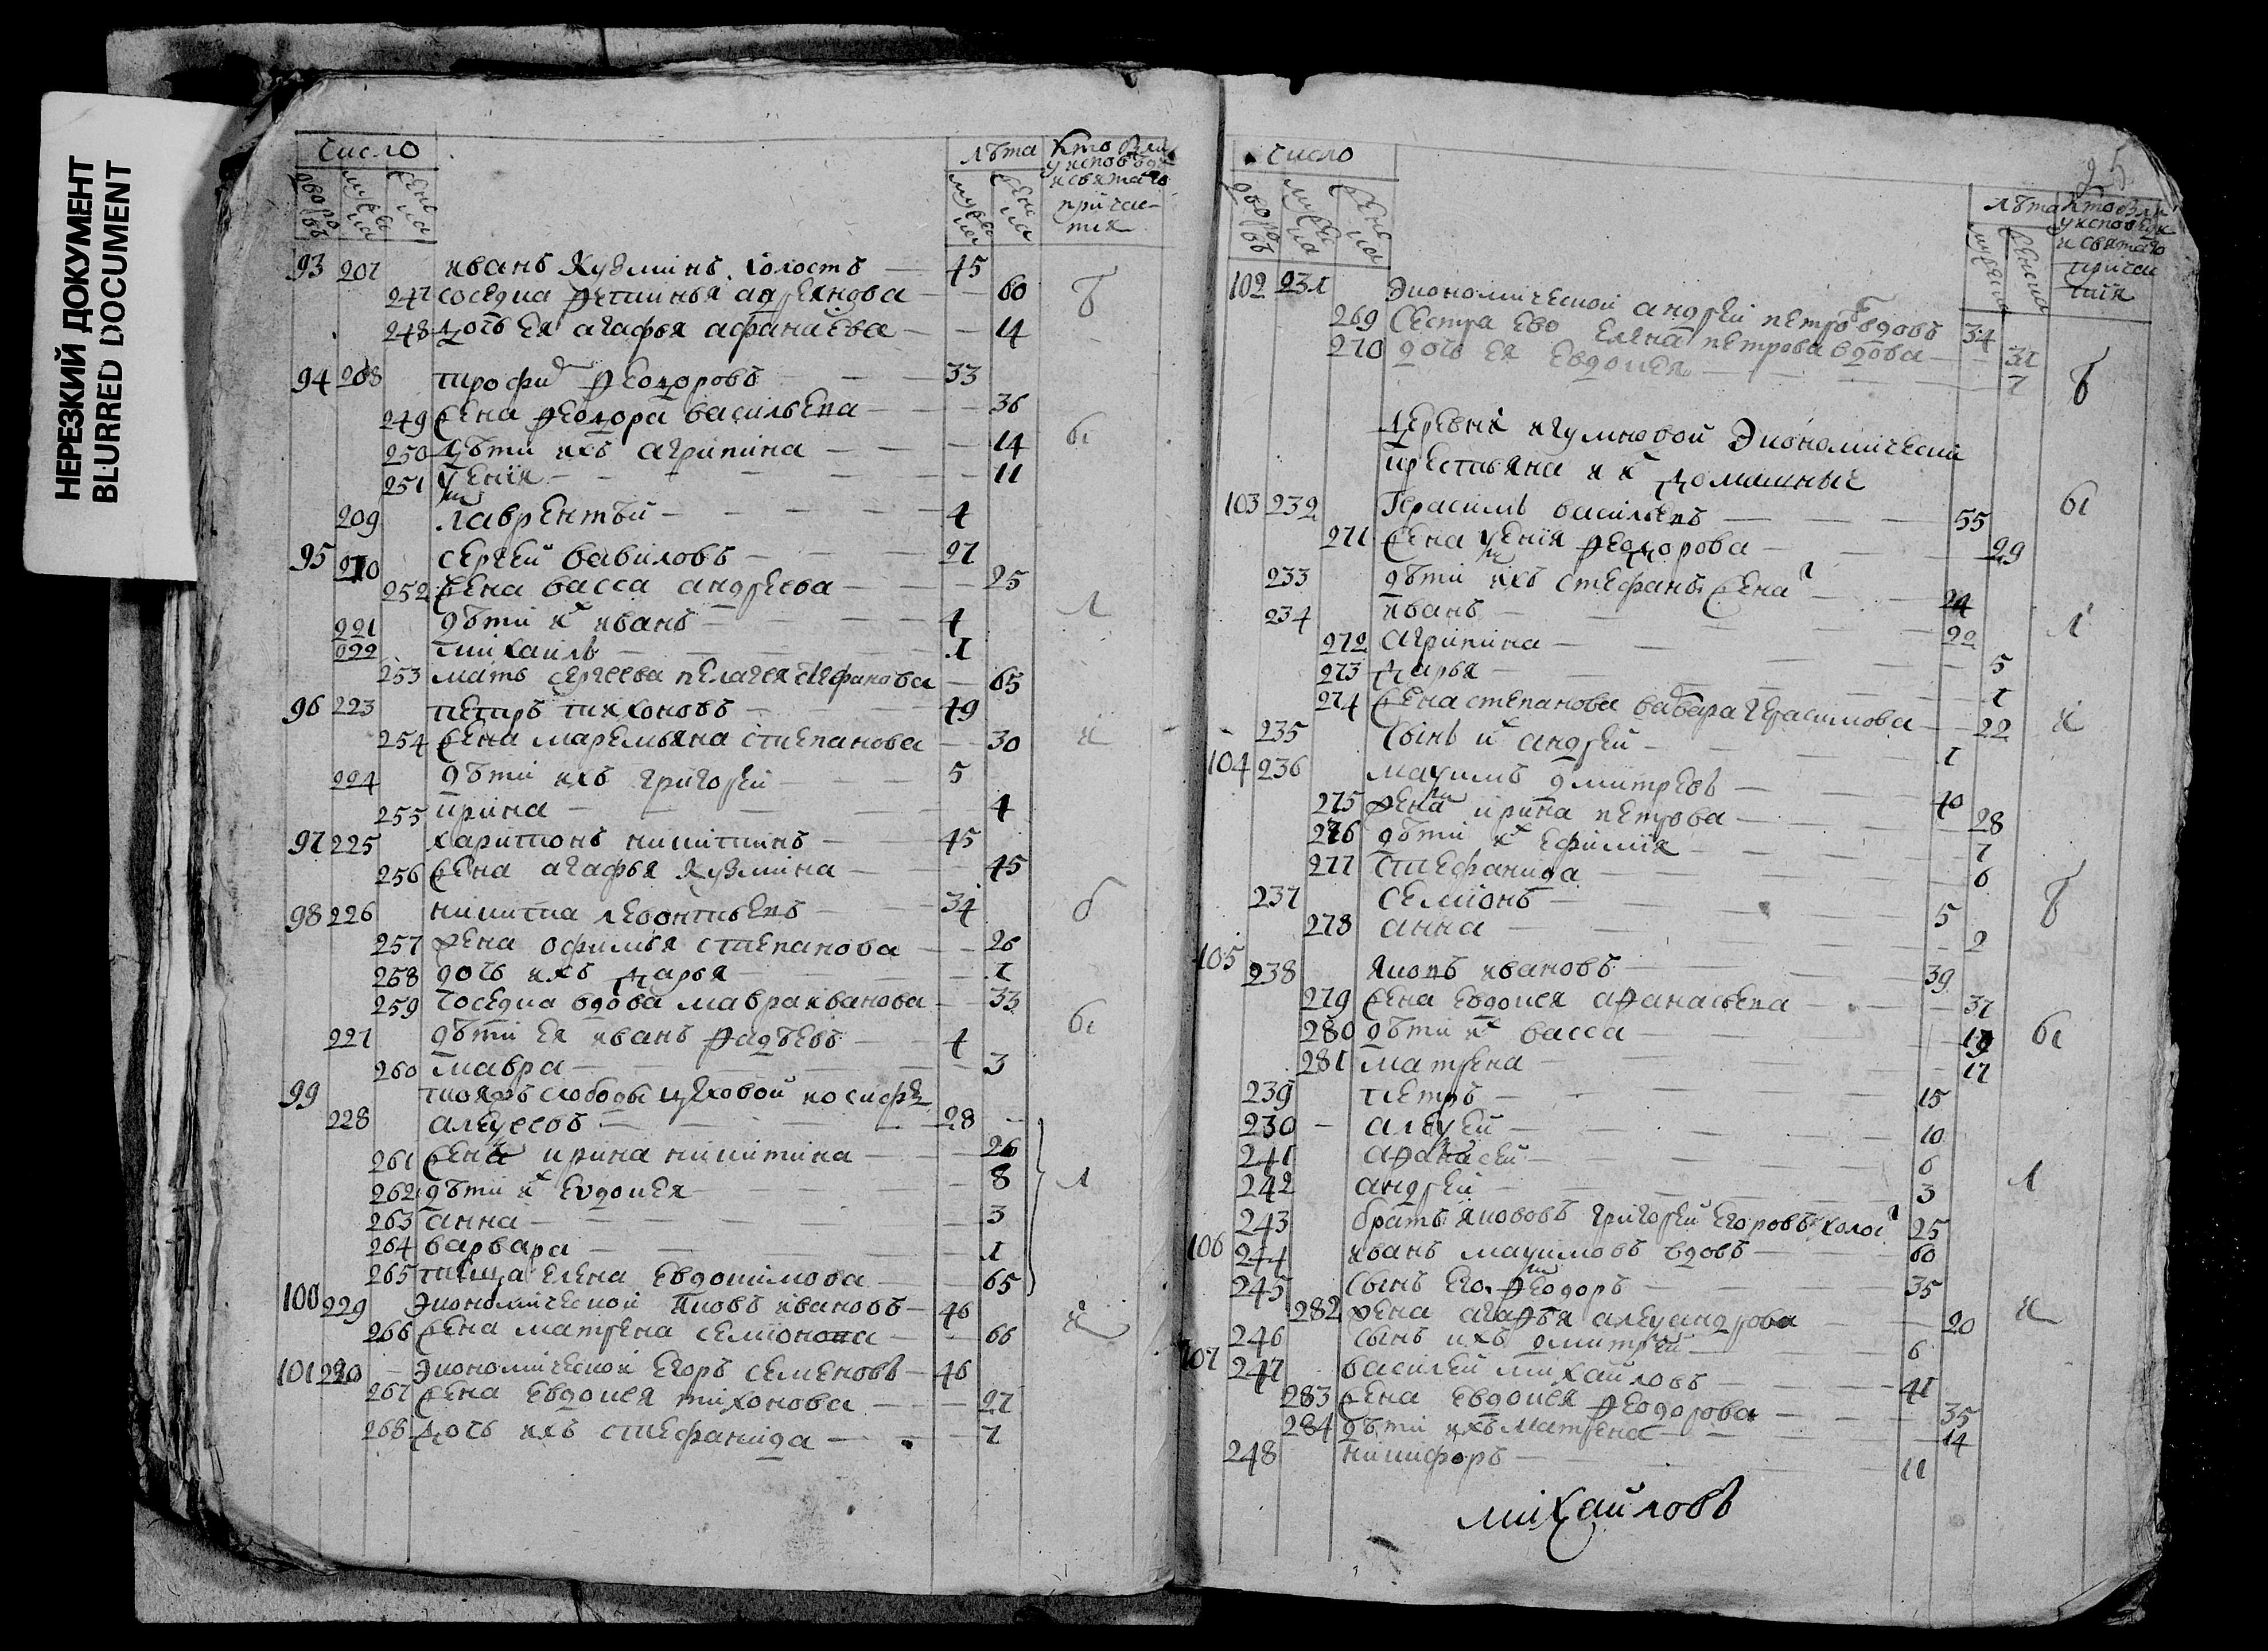 НЕРЕЗКИЙ ДОКУМЕНТ
BLURRED DOCUMENT
число
лѣта
дворовъ
93 207 иванъ кузминъ холостъ 45
247 соседка фетинья андреянова 60
248 дочь ея агафья афанасева 14
94 208 трофим феодоровъ 33
249 жена феодора васильева 36
250 дѣти ихъ агрипина 14
251 11
209 лаврентѣй 4
95 210 сергей вавиловъ 27
252 жена васса андреева 25
221 дѣти их иванъ 4
222 михаилъ 1
253 мать сергеева пелагея стефанова 65
96 223 петръ тихоновъ 49
254 жена маремьяна степанова 30
224 дѣти ихъ григорей 5
255 ирина 4
97 225 харитонъ никитинъ 45
256 жена агафья кузмина 45
98 226 никита леонтьевъ 34
257 жена офимья степанова 26
258 дочь ихъ дарья 1
259 соседка вдова мавра иванова 33
227 дѣти ея иванъ фадѣевъ 4
260 мавра 3
99 слободы цеховой иосифъ
228 алексеевъ 28
261 жена ирина никитина 26
262 дѣти их евдокея 8
263 анна 3
264 варвара 1
265 теща елена евдокимова 65
100 229 экономической яковъ ивановъ 46
266 жена матрена семионова 66
101 220 экономической егоръ семеновъ 46
267 жена евдокея тихонова 27
268 дочь ихъ стефанида 7
25
число
лѣта
102 231 экономической андрей петров вдовъ 34
269 сестра ево елена петрова вдова 37
270 дочь ея евдокея 7
деревни игумновой экономически
крестьяна и их домашные
103 232 герасимъ васильевъ 55
271 жена ксения феодорова 29
233 дѣти ихъ стефанъ жена 24
234 иванъ 22
272 агрипина 5
273 дарья 1
274 жена степанова варвара герасимова 22
235 сынъ их андрей 1
104 236 максимъ дмитревъ 40
275 жена ирина петрова 28
276 дѣти их ефимия 7
277 стефанида 6
237 семионъ 5
278 анна 2
105 238 яковъ ивановъ 39
279 жена евдокея афанасьева 37
280 дѣти их васса 19
281 матрена 17
239 петръ 15
230 алексей 10
241 афанасей 6
242 андрей 3
243 братъ якововъ григорей егоровъ холос 25
106 244 иванъ максимовъ вдовъ 60
245 сынъ его феодоръ 35
282 жена агафья александрова 20
246 сынъ ихъ дмитрей 6
107 247 василей михаиловъ 41
283 жена евдокея феодорова 35
284 дѣти ихъ матрена 14
248 никифоръ 11
михаиловъ